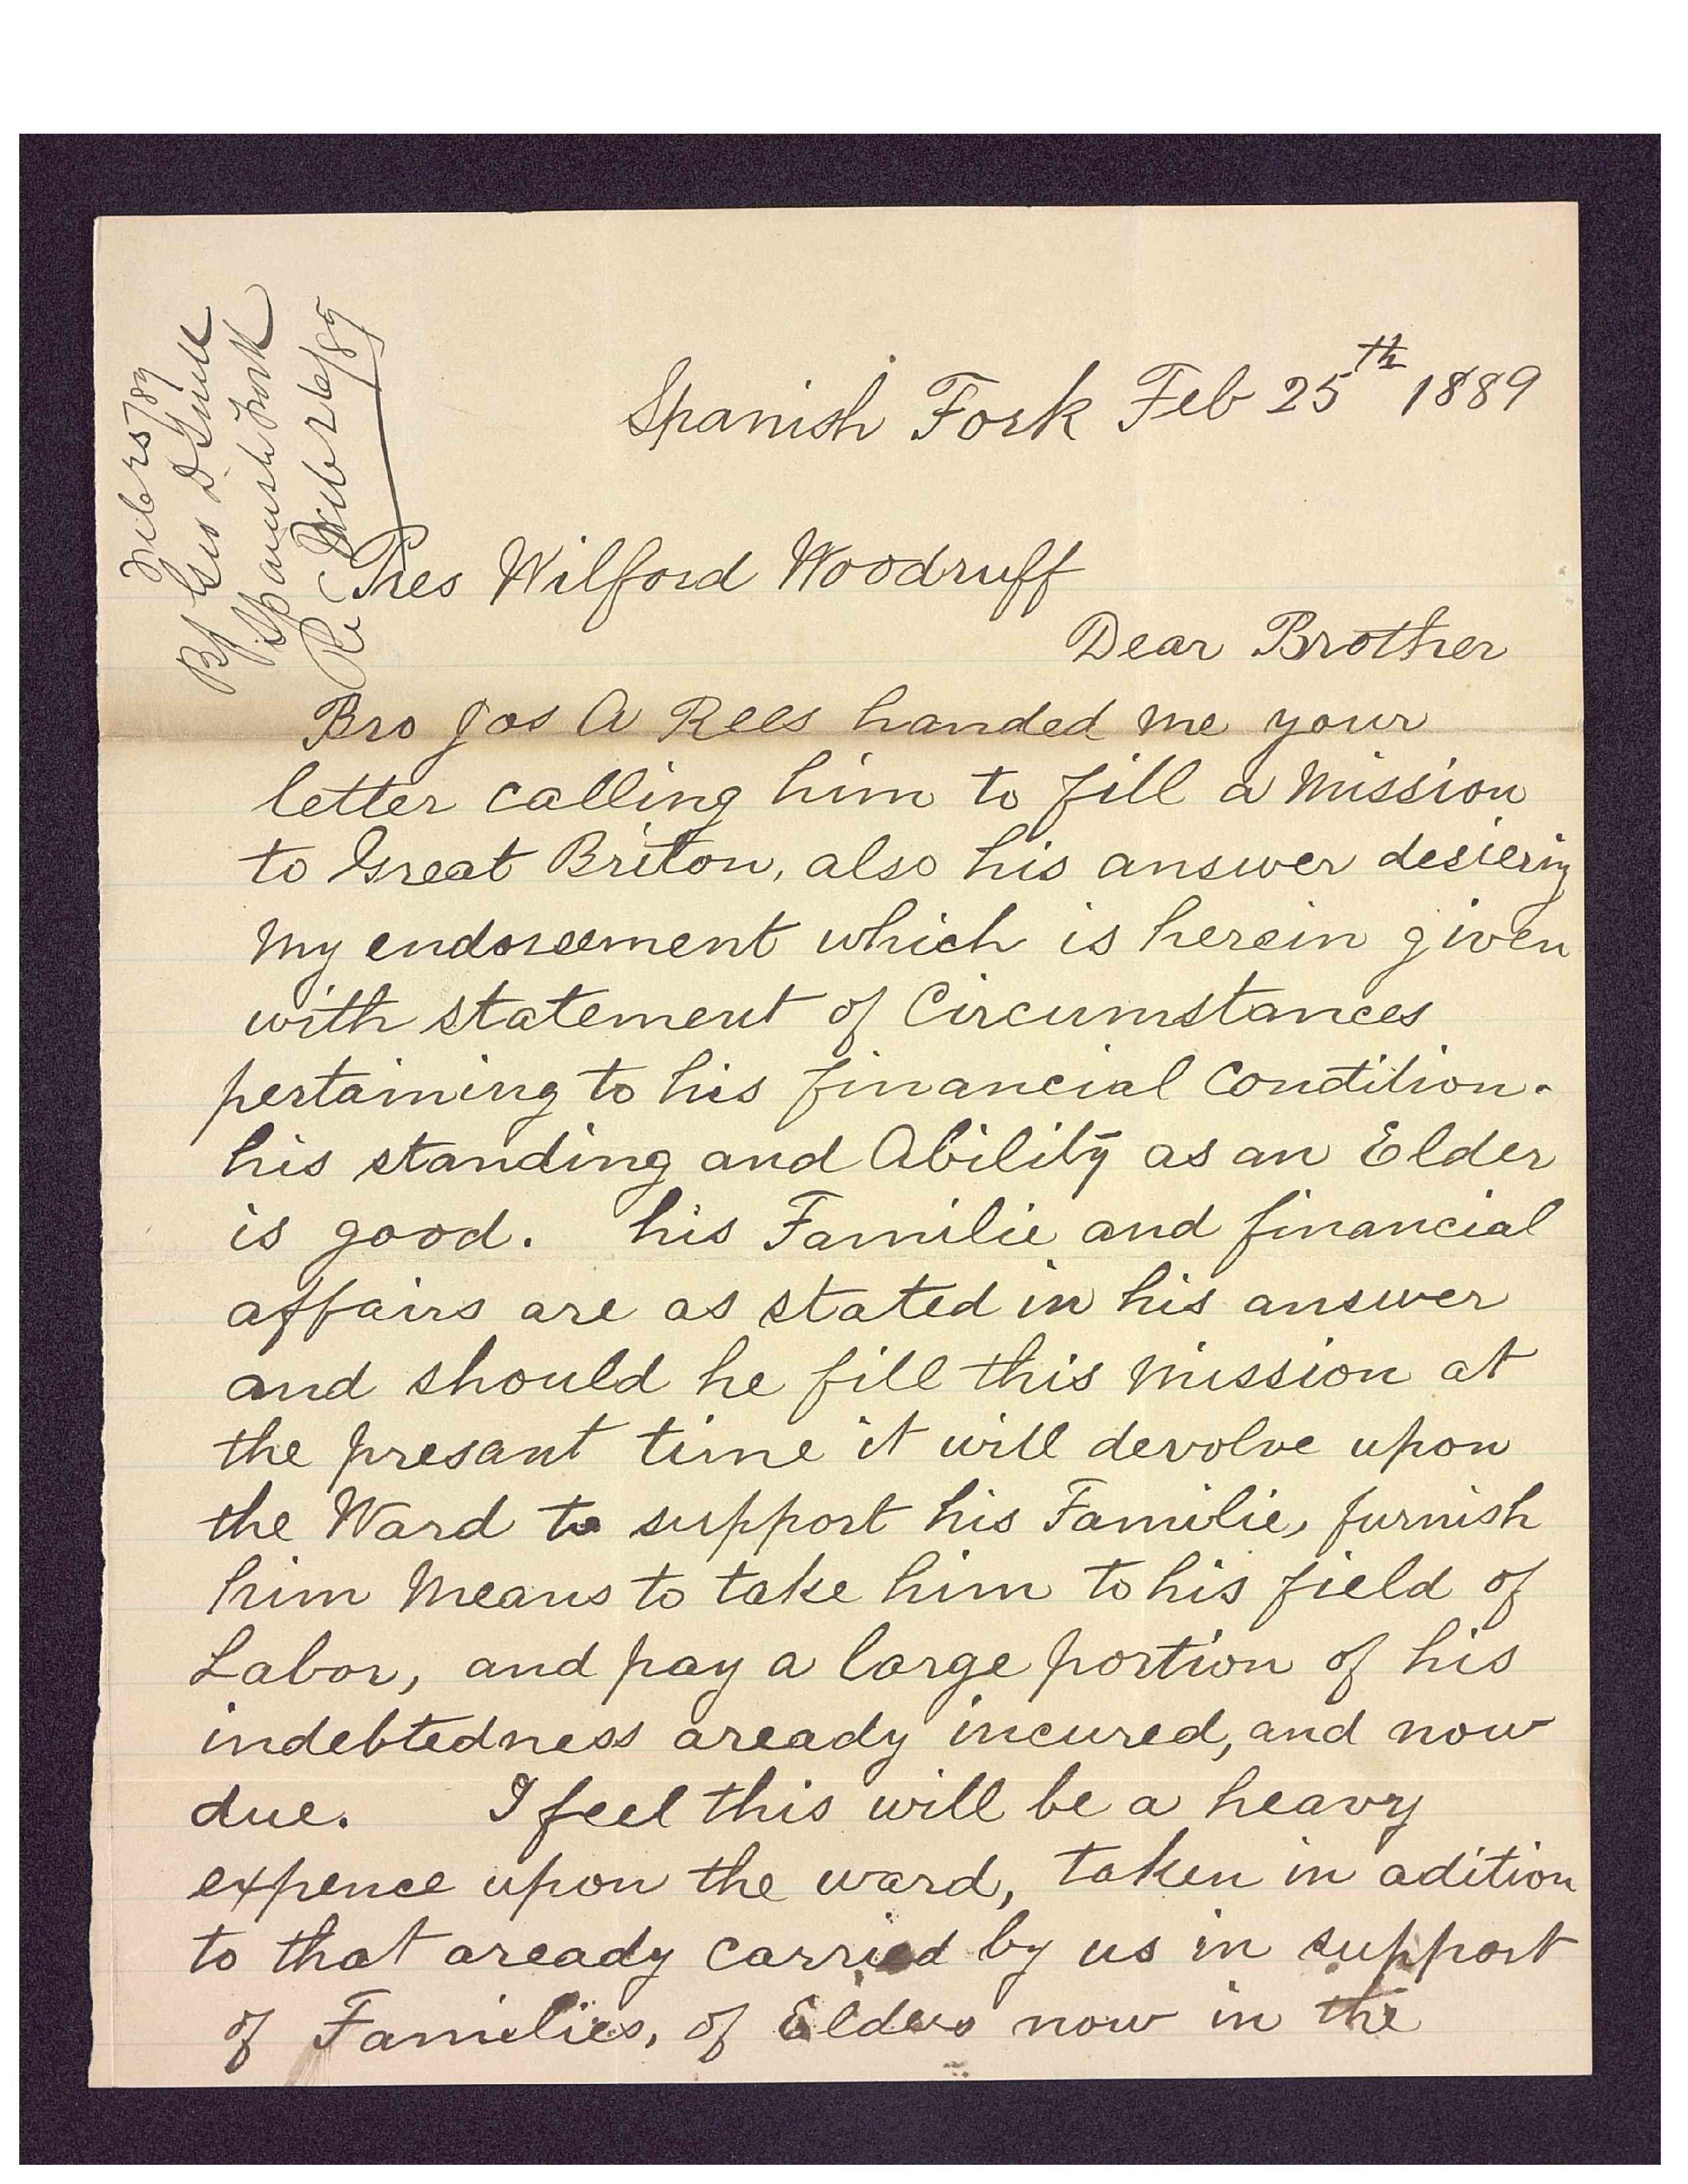 Feb 25/89
Bp Geo D Snell
Spanish Fork
Rec Feb 26/89
Spanish Fork Feb 25th 1889
Pres Wilford Woodruff
Dear Brother
Bro Jos A Rees handed me your
letter calling him to fill a Mission
to Great Briton, also his answer desiering
My endorsement which is herein given
with statement of Circumstances
pertaining to his financial Condition.
his standing and Ability as an Elder
is good. his Familie and financial
affairs are as stated in his answer
and should he fill this Mission at
the presant time it will devolve upon
the Ward to support his Familie, furnish
him Means to take him to his field of
Labor, and pay a large portion of his
indebtedness aready incured, and now
due. I feel this will be a heavy
expence upon the ward, taken in adition
to that aready carried by us in support
of Families, of Elders now in the